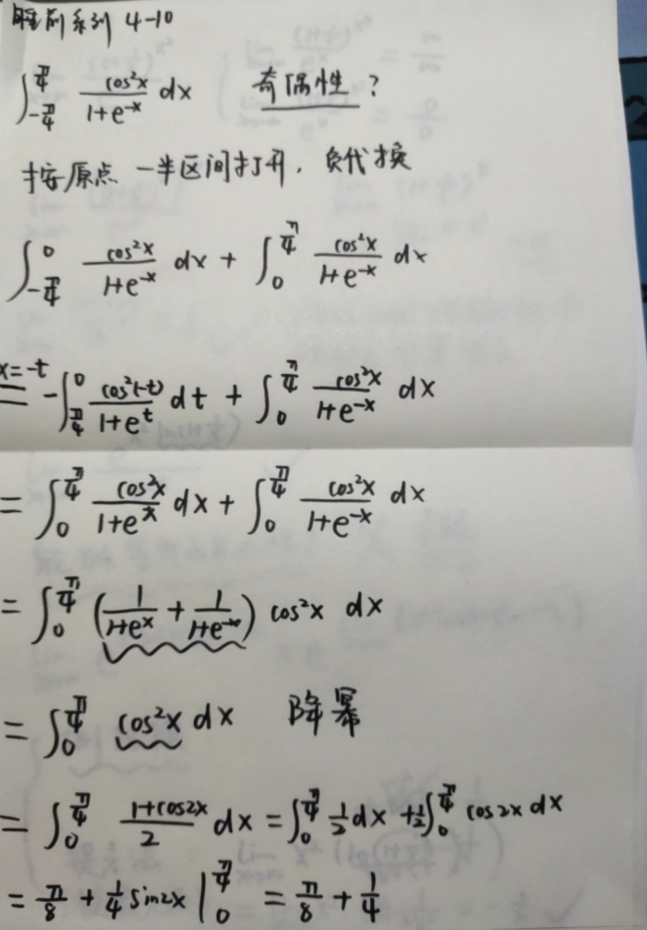 睡前系列 4-10
∫_{-π/4}^{π/4} cos²x/(1+e^{-x}) dx 奇偶性?
按原点一半区间打开, 负代换
∫_{-π/4}^{0} cos²x/(1+e^{-x}) dx + ∫_{0}^{π/4} cos²x/(1+e^{-x}) dx
x=-t
= -∫_{π/4}^{0} cos²(-t)/(1+e^{t}) dt + ∫_{0}^{π/4} cos²x/(1+e^{-x}) dx
= ∫_{0}^{π/4} cos²x/(1+e^{x}) dx + ∫_{0}^{π/4} cos²x/(1+e^{-x}) dx
= ∫_{0}^{π/4} (1/(1+e^{x}) + 1/(1+e^{-x})) cos²x dx
= ∫_{0}^{π/4} cos²x dx 降幂
= ∫_{0}^{π/4} (1+cos2x)/2 dx = ∫_{0}^{π/4} 1/2 dx + 1/2 ∫_{0}^{π/4} cos2x dx
= π/8 + 1/4 sin2x |_{0}^{π/4} = π/8 + 1/4